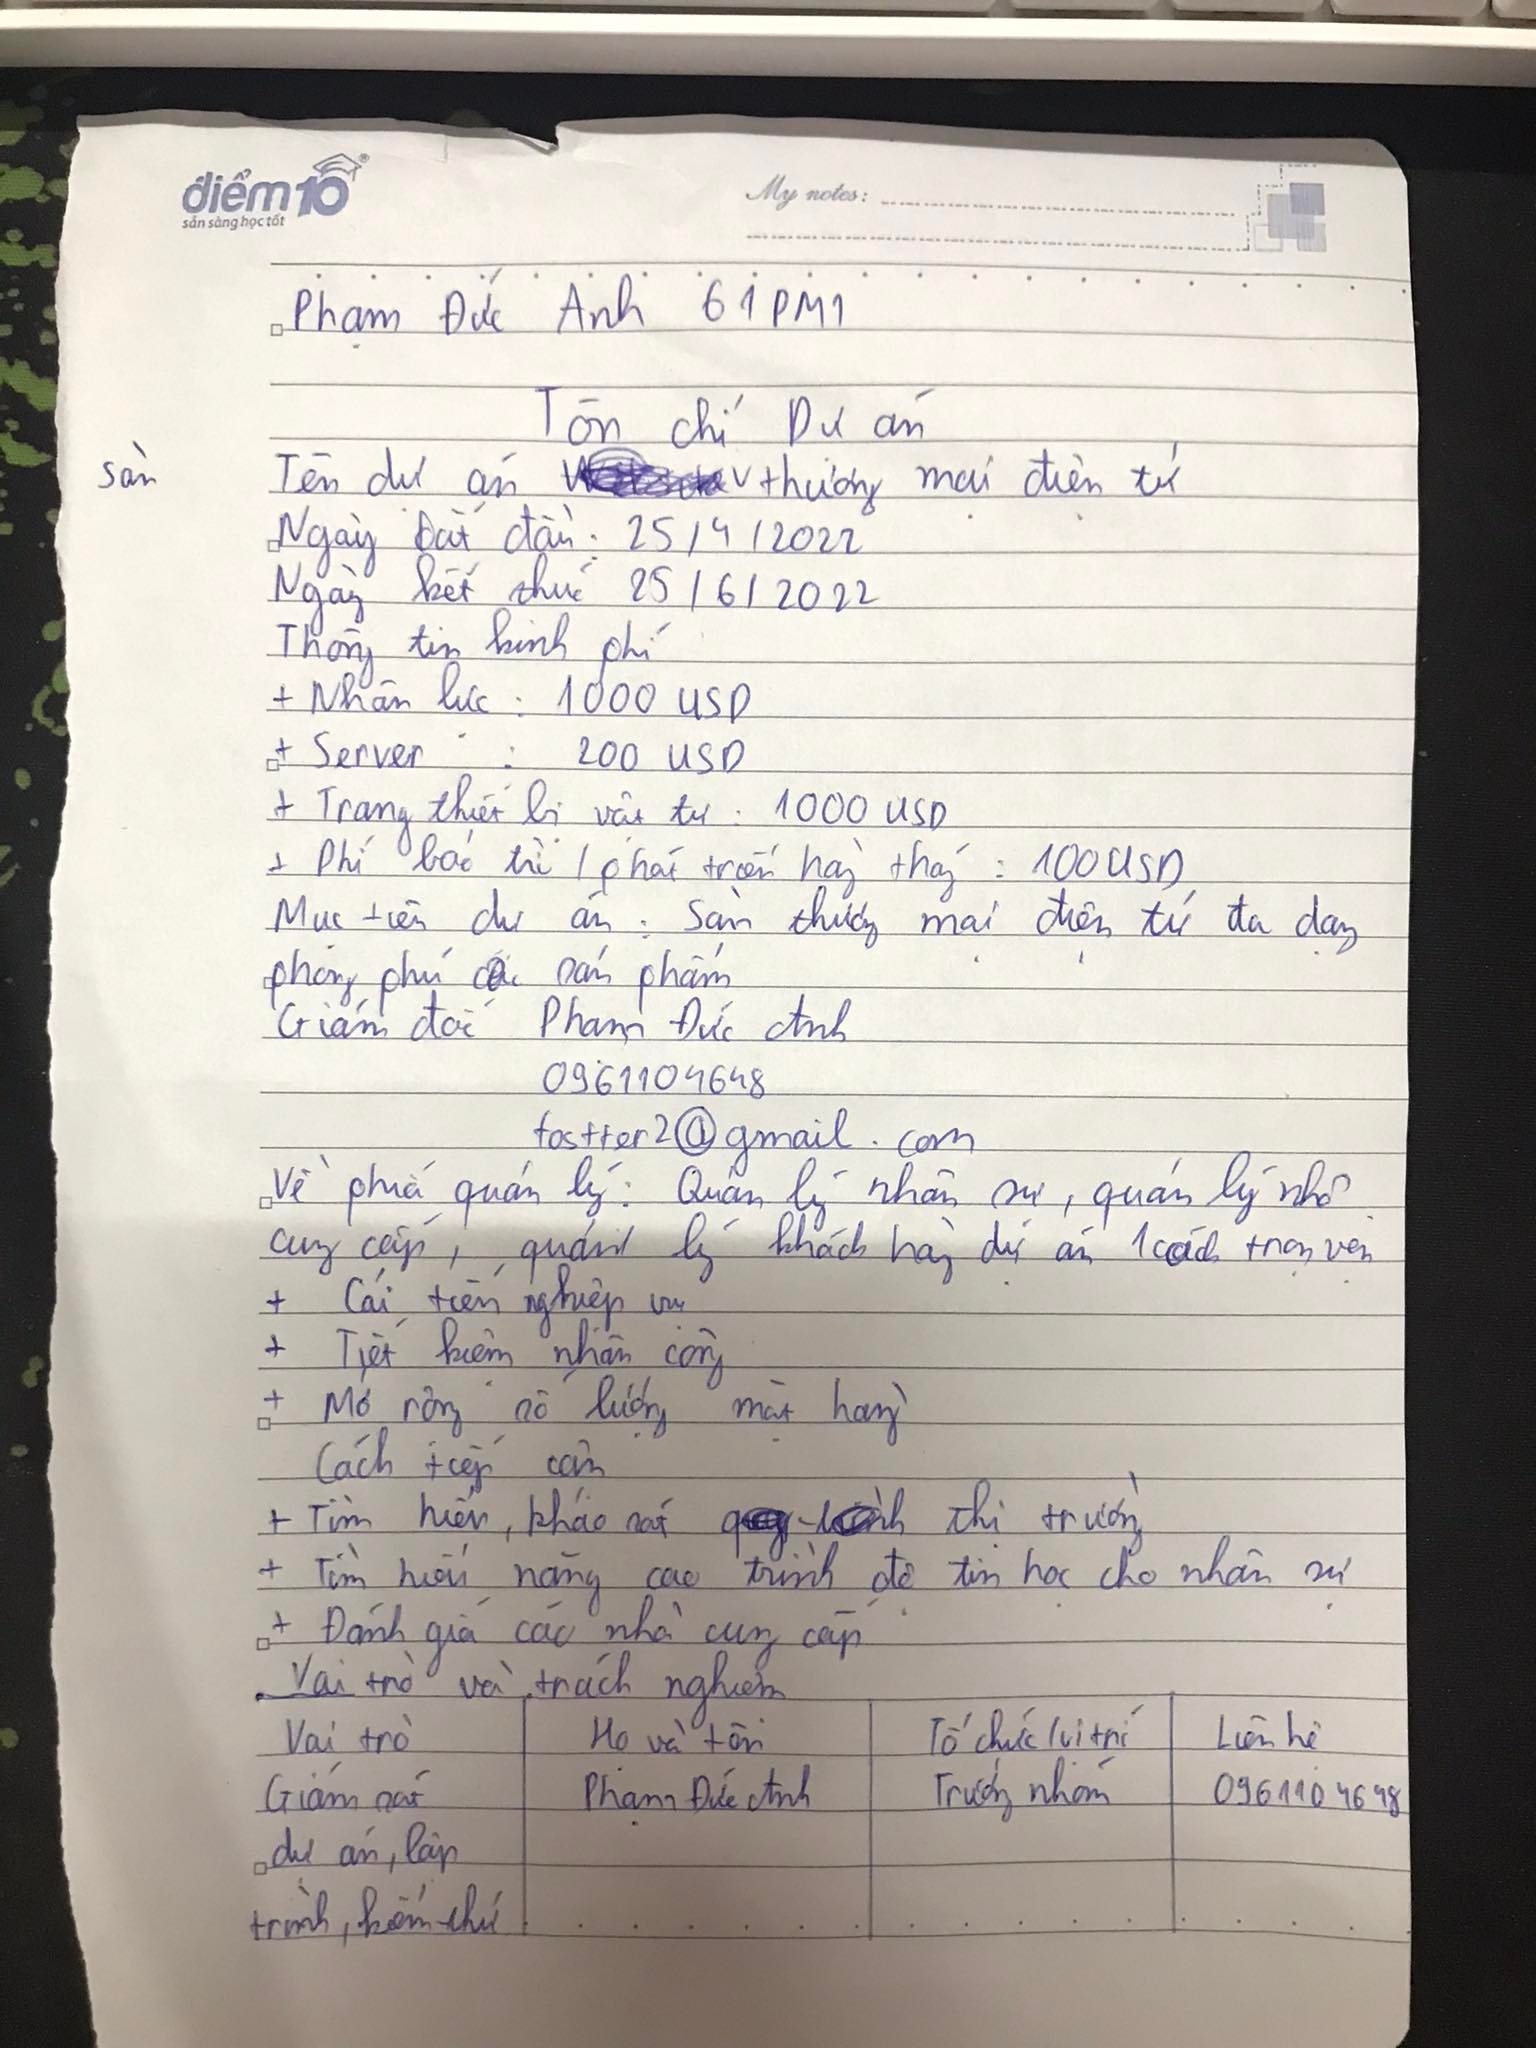 điểm10
sẵn sàng học tốt
My notes:
Phạm Đức Anh 61PM1
Tôn chỉ Dự án
Tên dự án sàn thương mại điện tử
Ngày bắt đầu: 25/4/2022
Ngày kết thúc 25/6/2022
Thông tin kinh phí
+ Nhân lực: 1000 USD
+ Server : 200 USD
+ Trang thiết bị vật tư: 1000 USD
+ Phí bảo trì / phát triển hàng tháng: 100USD
Mục tiêu dự án: Sàn thương mại điện tử đa dạng
phong phú các sản phẩm
Giám đốc Phạm Đức Anh
0961104648
tostter2@gmail.com
Về phía quản lý: Quản lý nhân sự, quản lý nhà
cung cấp, quản lý khách hàng dự án 1 cách trọn vẹn
+ Cải tiến nghiệp vụ
+ Tiết kiệm nhân công
+ Mở rộng số lượng mặt hàng
Cách tiếp cận
+ Tìm hiểu, khảo sát thị trường
+ Tìm hiểu nâng cao trình độ tin học cho nhân sự
+ Đánh giá các nhà cung cấp
Vai trò và trách nghiệm
Vai trò Họ và tên Tổ chức/vị trí Liên hệ
Giám sát Phạm Đức Anh Trưởng nhóm 0961104648
dự án, lập
trình, kiểm thử